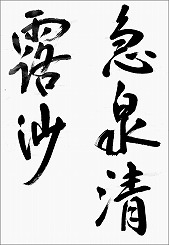 急泉清
露沙